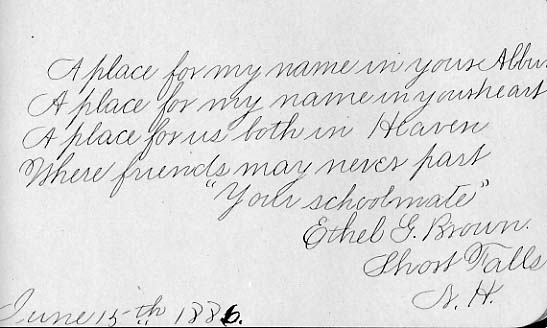 A place for my name in your Albu
A place for my name in your heart
A place for us both in Heaven
Where friends may never part
"Your schoolmate"
Ethel G. Brown.
Short Falls
N. H.
June 15th 1886.